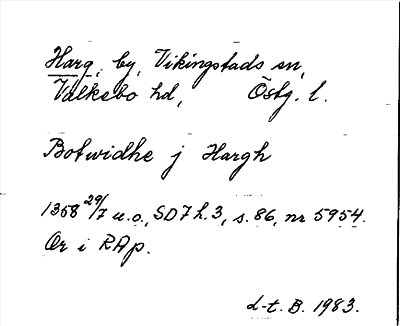 Harg, by, Vikingstads sn,
Valkebo hd, Östg. l.
Botwidhe j Hargh
1358 29/7 u.o., SD7 h.3, s. 86, nr 5954.
Or i RAp.
d-t. B. 1983.